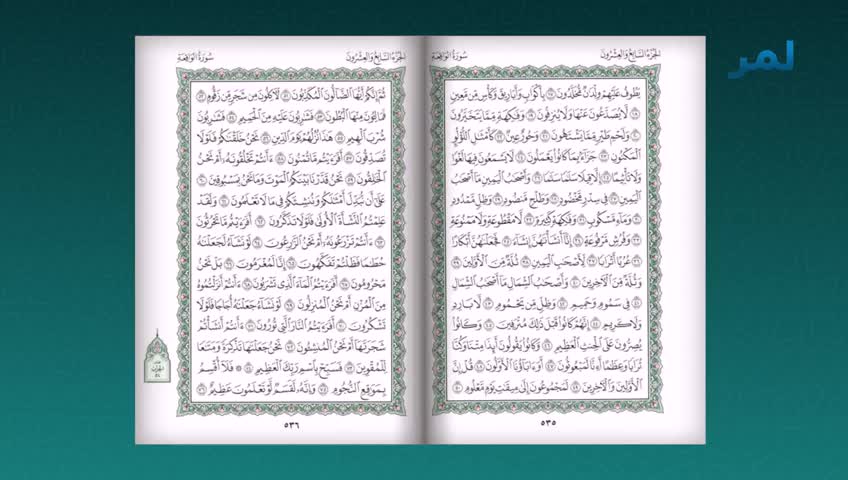 لمر
الجزء السابع والعشرون
سورة الواقعة
يطوف عليهم ولدان مخلدون ١٧ بأكواب وأباريق وكأس من معين
١٨ لا يصدعون عنها ولا ينزفون ١٩ وفاكهة مما يتخيرون
٢٠ ولحم طير مما يشتهون ٢١ وحور عين ٢٢ كأمثال اللؤلؤ
المكنون ٢٣ جزاء بما كانوا يعملون ٢٤ لا يسمعون فيها لغوا
ولا تأثيما ٢٥ إلا قيلا سلاما سلاما ٢٦ وأصحاب اليمين ما أصحاب
اليمين ٢٧ في سدر مخضود ٢٨ وطلح منضود ٢٩ وظل ممدود
٣٠ وماء مسكوب ٣١ وفاكهة كثيرة ٣٢ لا مقطوعة ولا ممنوعة
٣٣ وفرش مرفوعة ٣٤ إنا أنشأناهن إنشاء ٣٥ فجعلناهن أبكارا
٣٦ عربا أترابا ٣٧ لأصحاب اليمين ٣٨ ثلة من الأولين ٣٩
وثلة من الآخرين ٤٠ وأصحاب الشمال ما أصحاب الشمال
٤١ في سموم وحميم ٤٢ وظل من يحموم ٤٣ لا بارد
ولا كريم ٤٤ إنهم كانوا قبل ذلك مترفين ٤٥ وكانوا
يصرون على الحنث العظيم ٤٦ وكانوا يقولون أئذا متنا وكنا
ترابا وعظاما أءنا لمبعوثون ٤٧ أوءاباؤنا الأولون ٤٨ قل إن
الأولين والآخرين ٤٩ لمجموعون إلى ميقات يوم معلوم ٥٠
٥٣٥
الجزء السابع والعشرون
سورة الواقعة
ثم إنكم أيها الضالون المكذبون ٥١ لآكلون من شجر من زقوم ٥٢
فمالئون منها البطون ٥٣ فشاربون عليه من الحميم ٥٤ فشاربون
شرب الهيم ٥٥ هذا نزلهم يوم الدين ٥٦ نحن خلقناكم فلولا
تصدقون ٥٧ أفرءيتم ما تمنون ٥٨ ءأنتم تخلقونه أم نحن
الخالقون ٥٩ نحن قدرنا بينكم الموت وما نحن بمسبوقين ٦٠
على أن نبدل أمثالكم وننشئكم في ما لا تعلمون ٦١ ولقد
علمتم النشأة الأولى فلولا تذكرون ٦٢ أفرءيتم ما تحرثون
٦٣ ءأنتم تزرعونه أم نحن الزارعون ٦٤ لو نشاء لجعلناه
حطاما فظلتم تفكهون ٦٥ إنا لمغرمون ٦٦ بل نحن
محرومون ٦٧ أفرءيتم الماء الذي تشربون ٦٨ ءأنتم أنزلتموه
من المزن أم نحن المنزلون ٦٩ لو نشاء جعلناه أجاجا فلولا
تشكرون ٧٠ أفرءيتم النار التي تورون ٧١ ءأنتم أنشأتم
شجرتها أم نحن المنشئون ٧٢ نحن جعلناها تذكرة ومتاعا
للمقوين ٧٣ فسبح باسم ربك العظيم ٧٤ فلا أقسم
بمواقع النجوم ٧٥ وإنه لقسم لو تعلمون عظيم ٧٦
٥٣٦